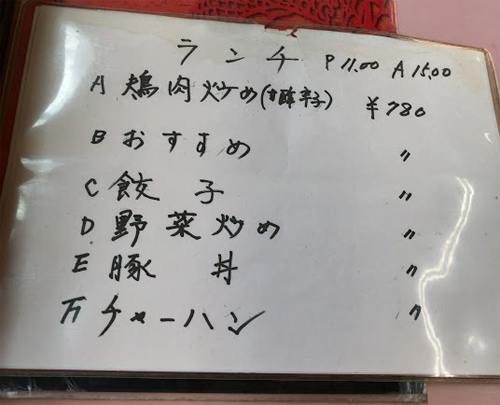 ランチ P 11.00 A 15.00
A 鶏肉炒め(甘酢辛子) ¥780
B おすすめ 〃
C 餃子 〃
D 野菜炒め 〃
E 豚丼 〃
万 チャーハン 〃